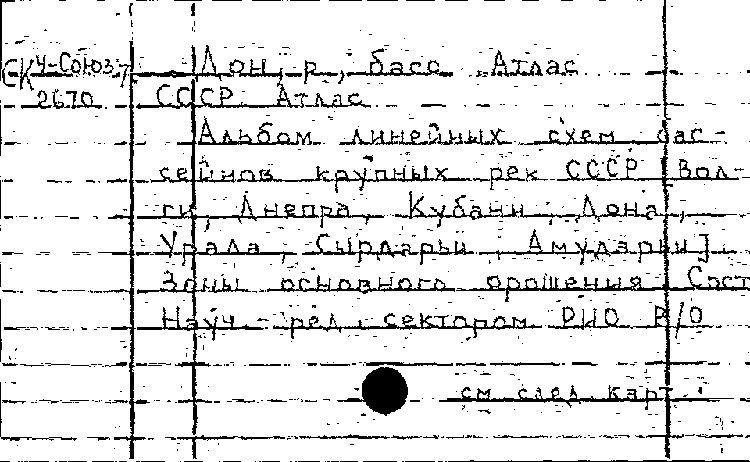 СК 4-Союз 7 Дон, р., басс. Атлас
2670 СССР. Атлас
Альбом линейных схем бас-
сейнов крупных рек СССР [Вол-
ги, Днепра, Кубани, Дона,
Урала, Сырдарьи, Амударьи].
Зоны основного орошения. Сост.
Науч.-ред. сектором РИО В/О
см. след. карт.